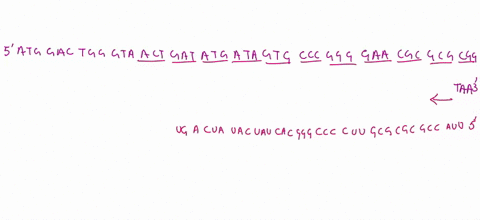 5' ATG GAC TGG GTA ACT GAT ATG ATA GTG CCC GGG GAA CGC GCG CGG
TAA3'
UG A CUA UAC UAU CAC GGG CCC C UU GCG CGC GCC AUU 5'